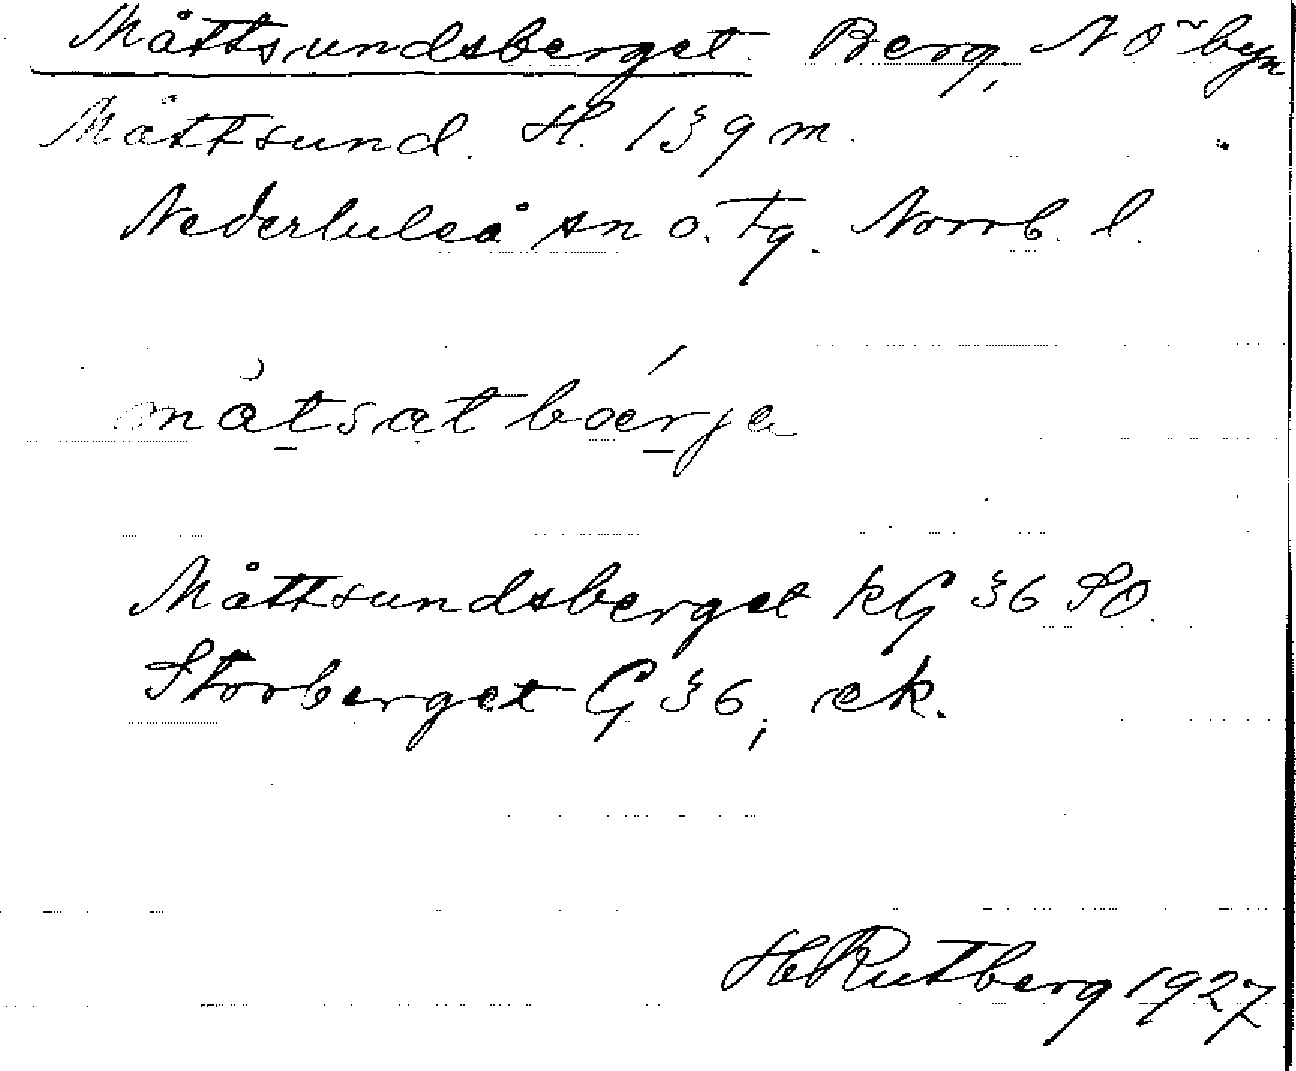 Måttsundsberget. Berg, NO byn
Måttsund. H. 139 m.
Nederluleå sn o. tg. Norrb. l.
måtsatbærje
Måttsundsberget kG 36 SO.
Storberget G 36, ek.
H Rutberg 1927